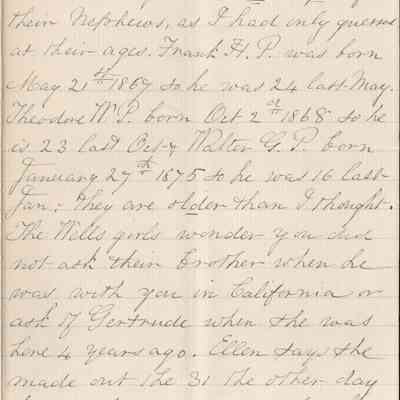 their Nephews, as I had only guessed
at their ages. Frank H. P. was born
May 21st 1867 so he was 24 last May.
Theodore W. P. born Oct 2d 1868 so he
is 23 last Oct & Walter G. P. born
Januuary 27th 1875 so he was 16 last
Jan: they are older than I thought.
The Wells girls wonder you did
not ask their brother when he
was with you in California or
ask if Gertrude when she was
here 4 years ago. Ellen says she
made out the 31 the other day